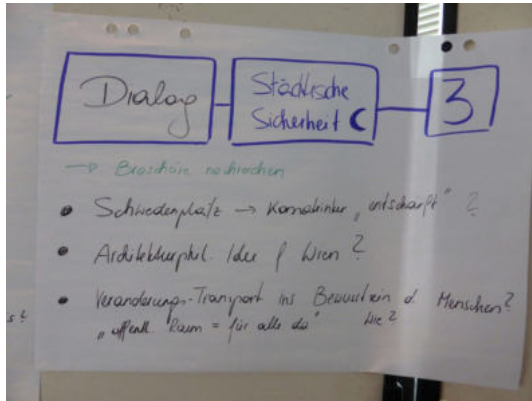 Dialog
Städtische
Sicherheit
3
→ Broschüre nachreichen
• Schwedenplatz → Komatrinker „entschärft" ?
• Architekturphil. Idee f Wien ?
• Veränderungs-Transport ins Bewusstsein d. Menschen?
„öffentl. Raum = für alle da" Wie?
s?